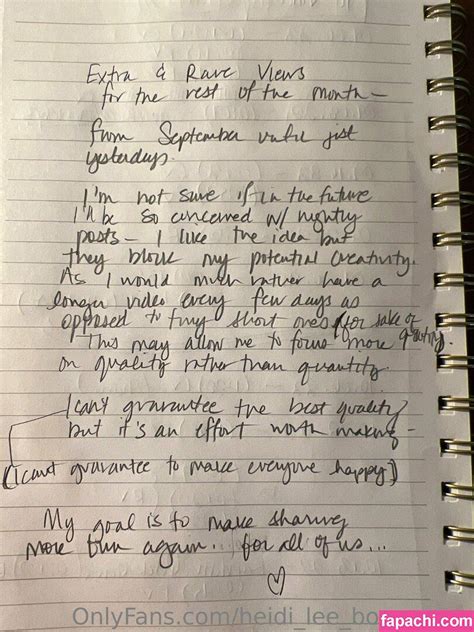 Extra & Rare Views
for the rest of the month —
from September until just
yesterday.
I'm not sure if in the future
I'll be so concerned w/ nightly
posts — I like the idea but
they block my potential creativity.
As I would much rather have a
longer video every few days as
opposed to tiny short ones for sake of
This may allow me to focus more
on quality rather than quantity.
I can't guarantee the best quality
but it's an effort worth making —
(I can't guarantee to make everyone happy)
My goal is to make sharing
more fun again... for all of us...
OnlyFans.com/heidi_lee_bo
fapachi.com